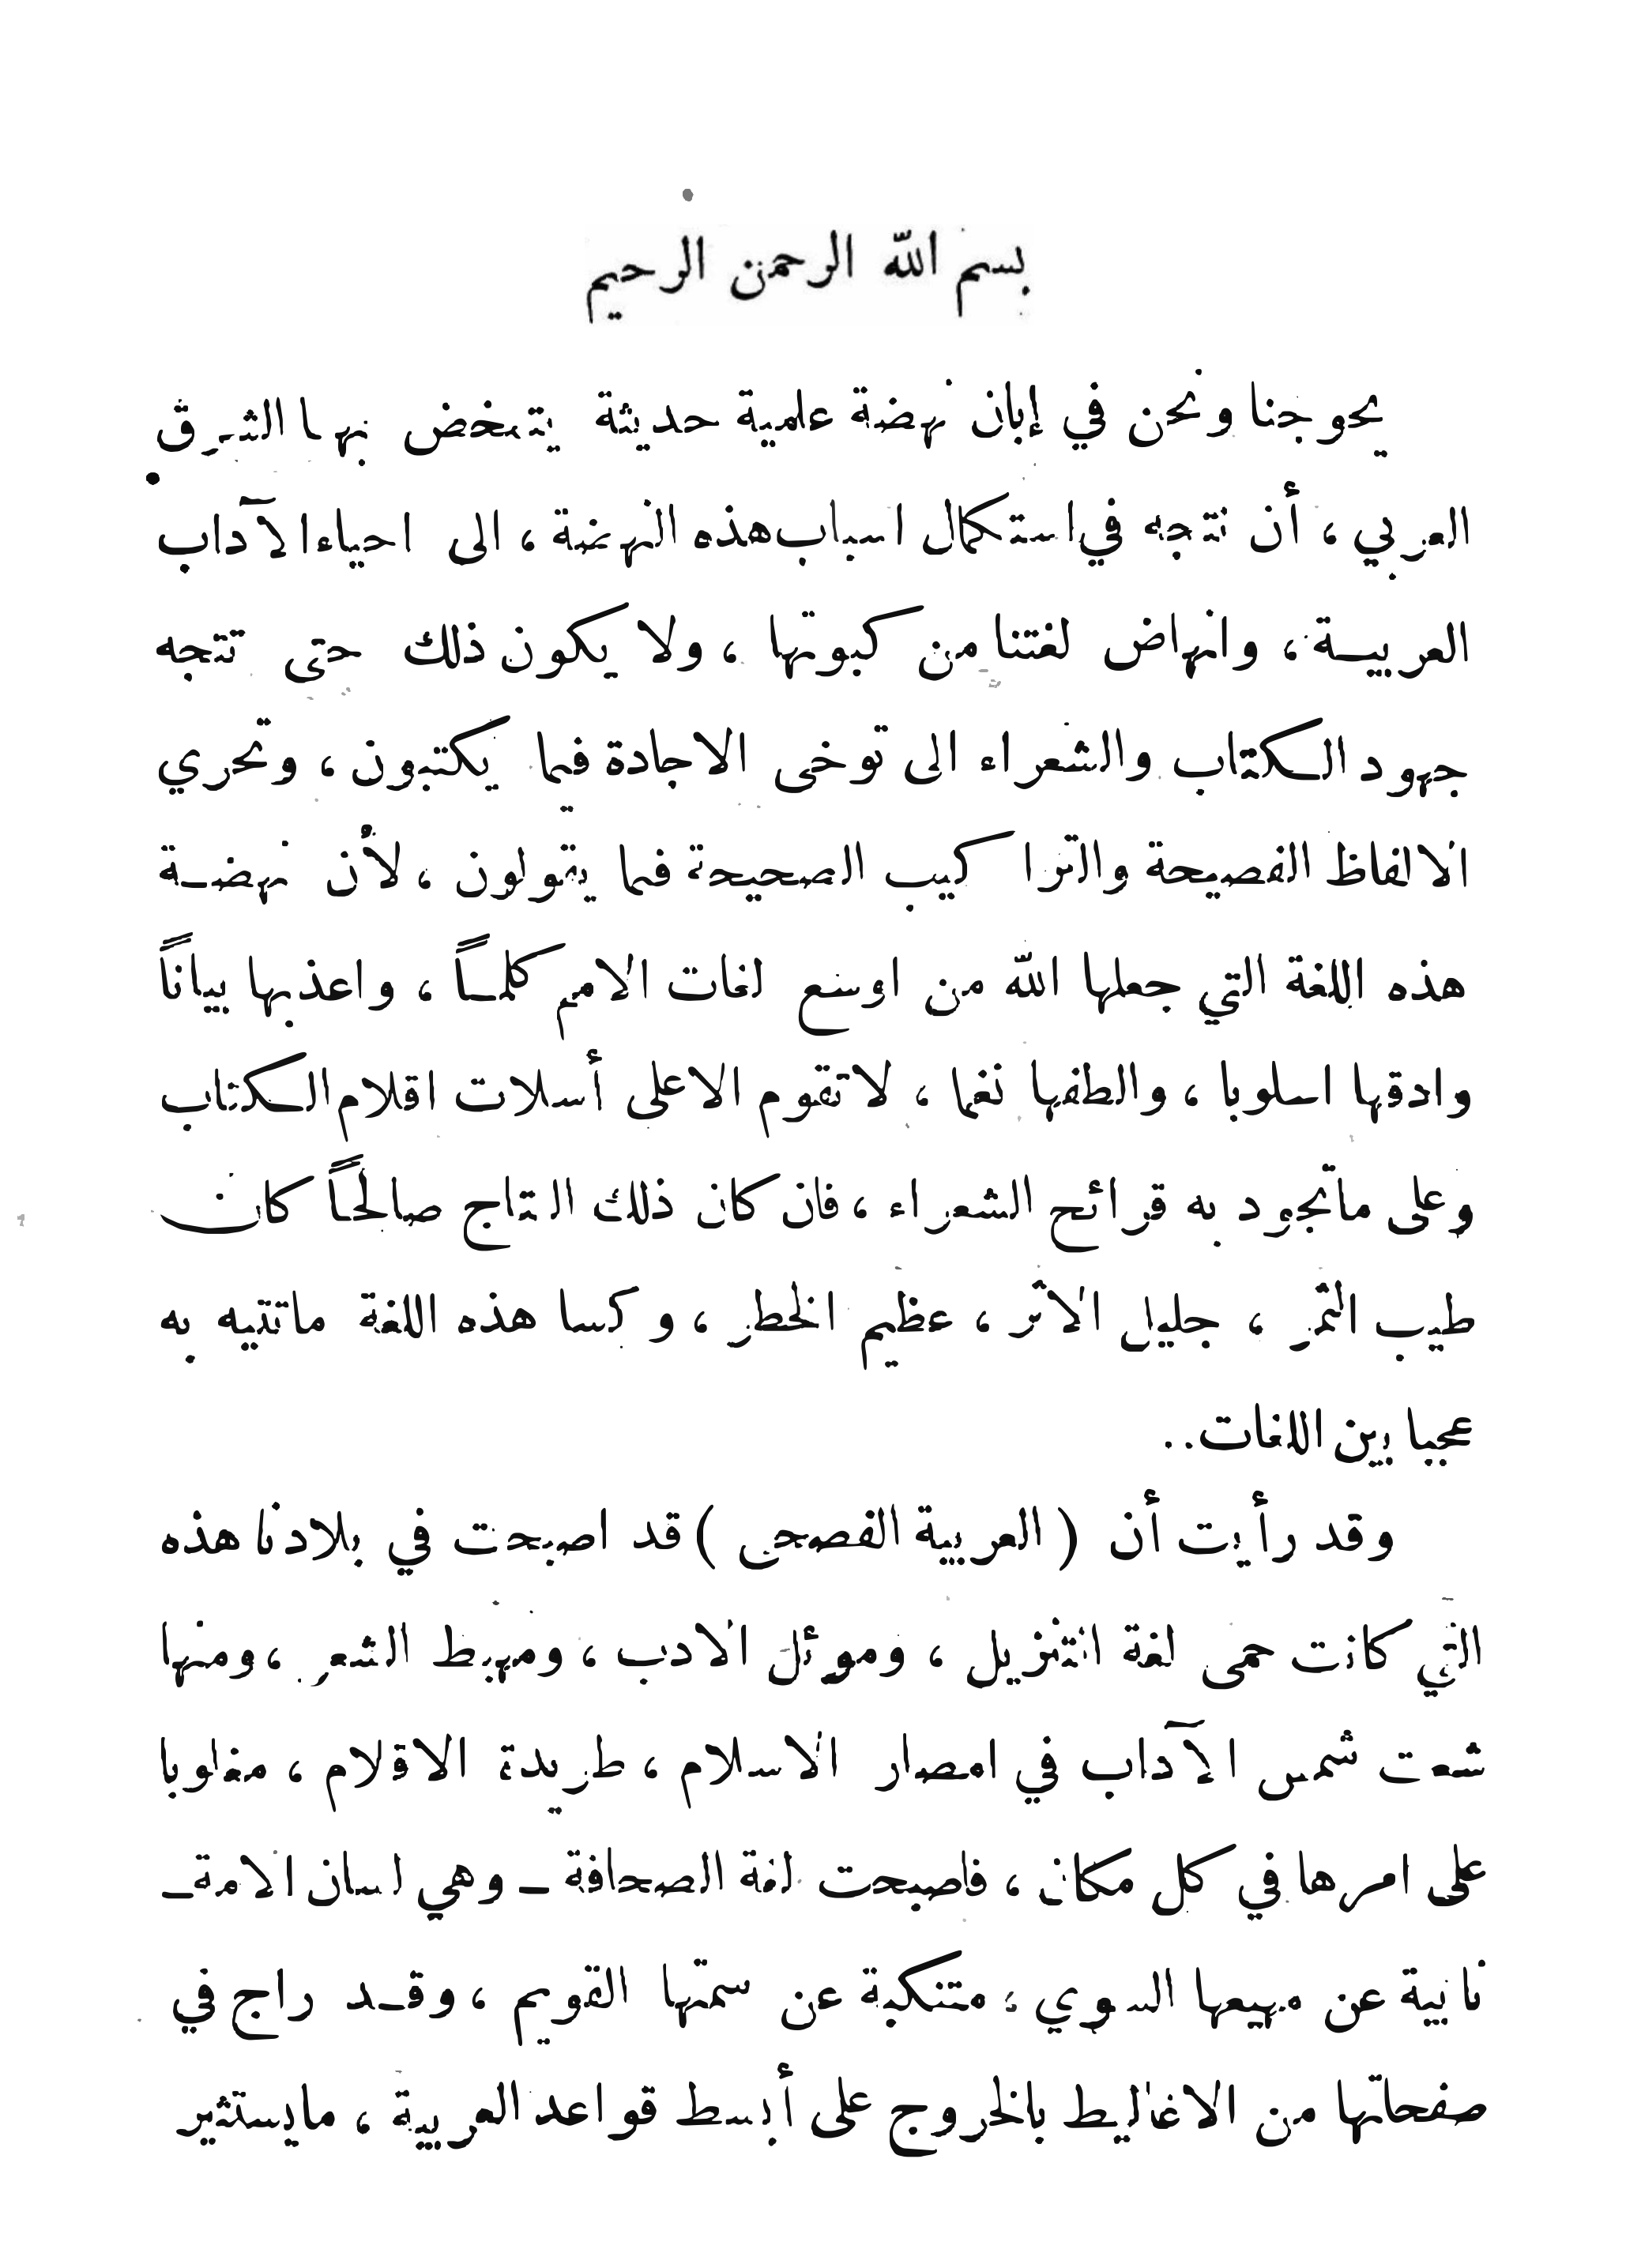 بسم الله الرحمن الرحيم
يحوجنا ونحن في إبان نهضة علمية حديثة يتمخض بها الشرق
العربي ، أن نتجه في استكمال اسباب هذه النهضة ، الى احياء الآداب
العربيـة ، وانهاض لغتنا من كبوتها ، ولا يكون ذلك حتى تتجه
جهود الكتاب والشعراء الى توخى الاجادة فيما يكتبون ، وتحري
الالفاظ الفصيحة والتراكيب الصحيحة فيما يقولون ، لأن نهضـة
هذه اللغة التي جعلها الله من اوسع لغات الامم كلمـاً ، واعذبها بياناً
وادقها اسلوبا ، والطفها نغما ، لا تقوم الا على أسلات اقلام الكتاب
وعلى ما تجود به قرائح الشعراء ، فان كان ذلك النتاج صالحاً كان
طيب الثمر ، جليل الاثر ، عظيم الخطر ، وكسا هذه اللغة ما تتيه به
عجبا بين اللغات ..
وقد رأيت أن ( العربية الفصحى ) قد اصبحت في بلادنا هذه
التي كانت حمى لغة التنزيل ، وموئل الادب ، ومهبط الشعر ، ومنها
شعت شمس الآداب في امصار الاسلام ، طريدة الاقلام ، مغلوبا
على امرها في كل مكان ، فاصبحت لغة الصحافة ـ وهي لسان الامة ـ
نابية عن مهيعها السوي ، متنكبة عن سمتها القويم ، وقـد راج في
صفحاتها من الاغاليط بالخروج على أبسط قواعد العربية ، ما يستثير